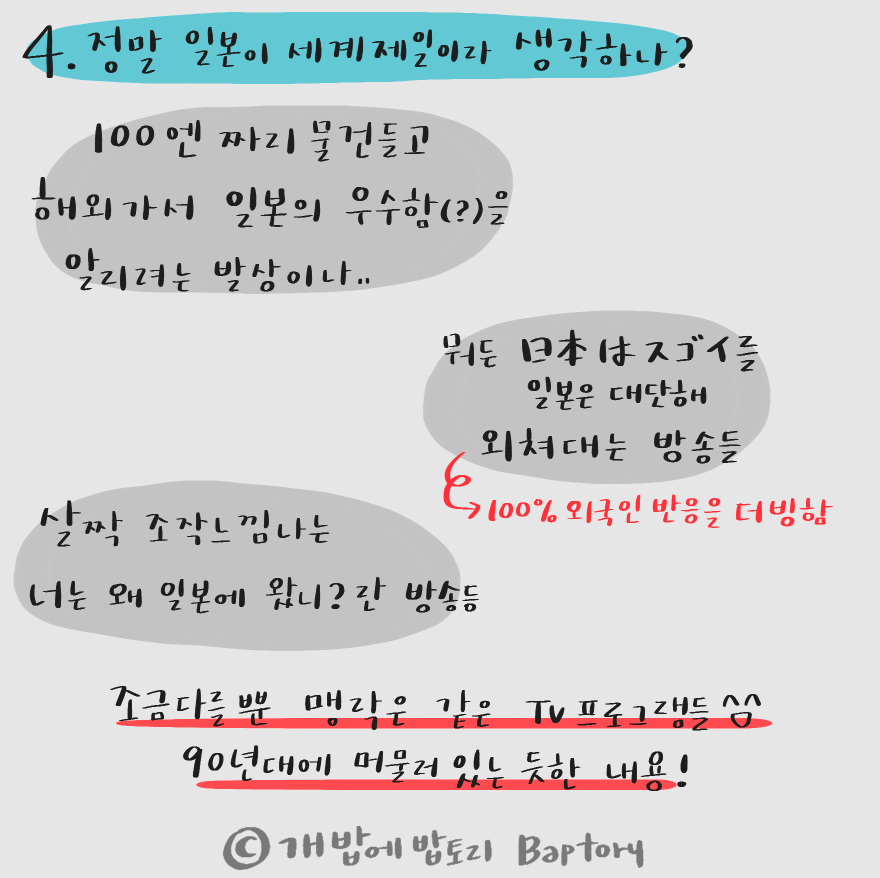 4. 정말 일본이 세계제일이라 생각하나?
100엔 짜리 물건들고
해외가서 일본의 우수함(?)을
알리려는 발상이나..
뭐든 日本はスゴイ를
일본은 대단해
외쳐대는 방송들
100% 외국인 반응을 더빙함
살짝 조작느낌나는
너는 왜 일본에 왔니? 란 방송등
조금다를뿐 맥락은 같은 TV프로그램들 ^^
90년대에 머물러 있는 듯한 내용!
©개밥에 밥토리 Baptory